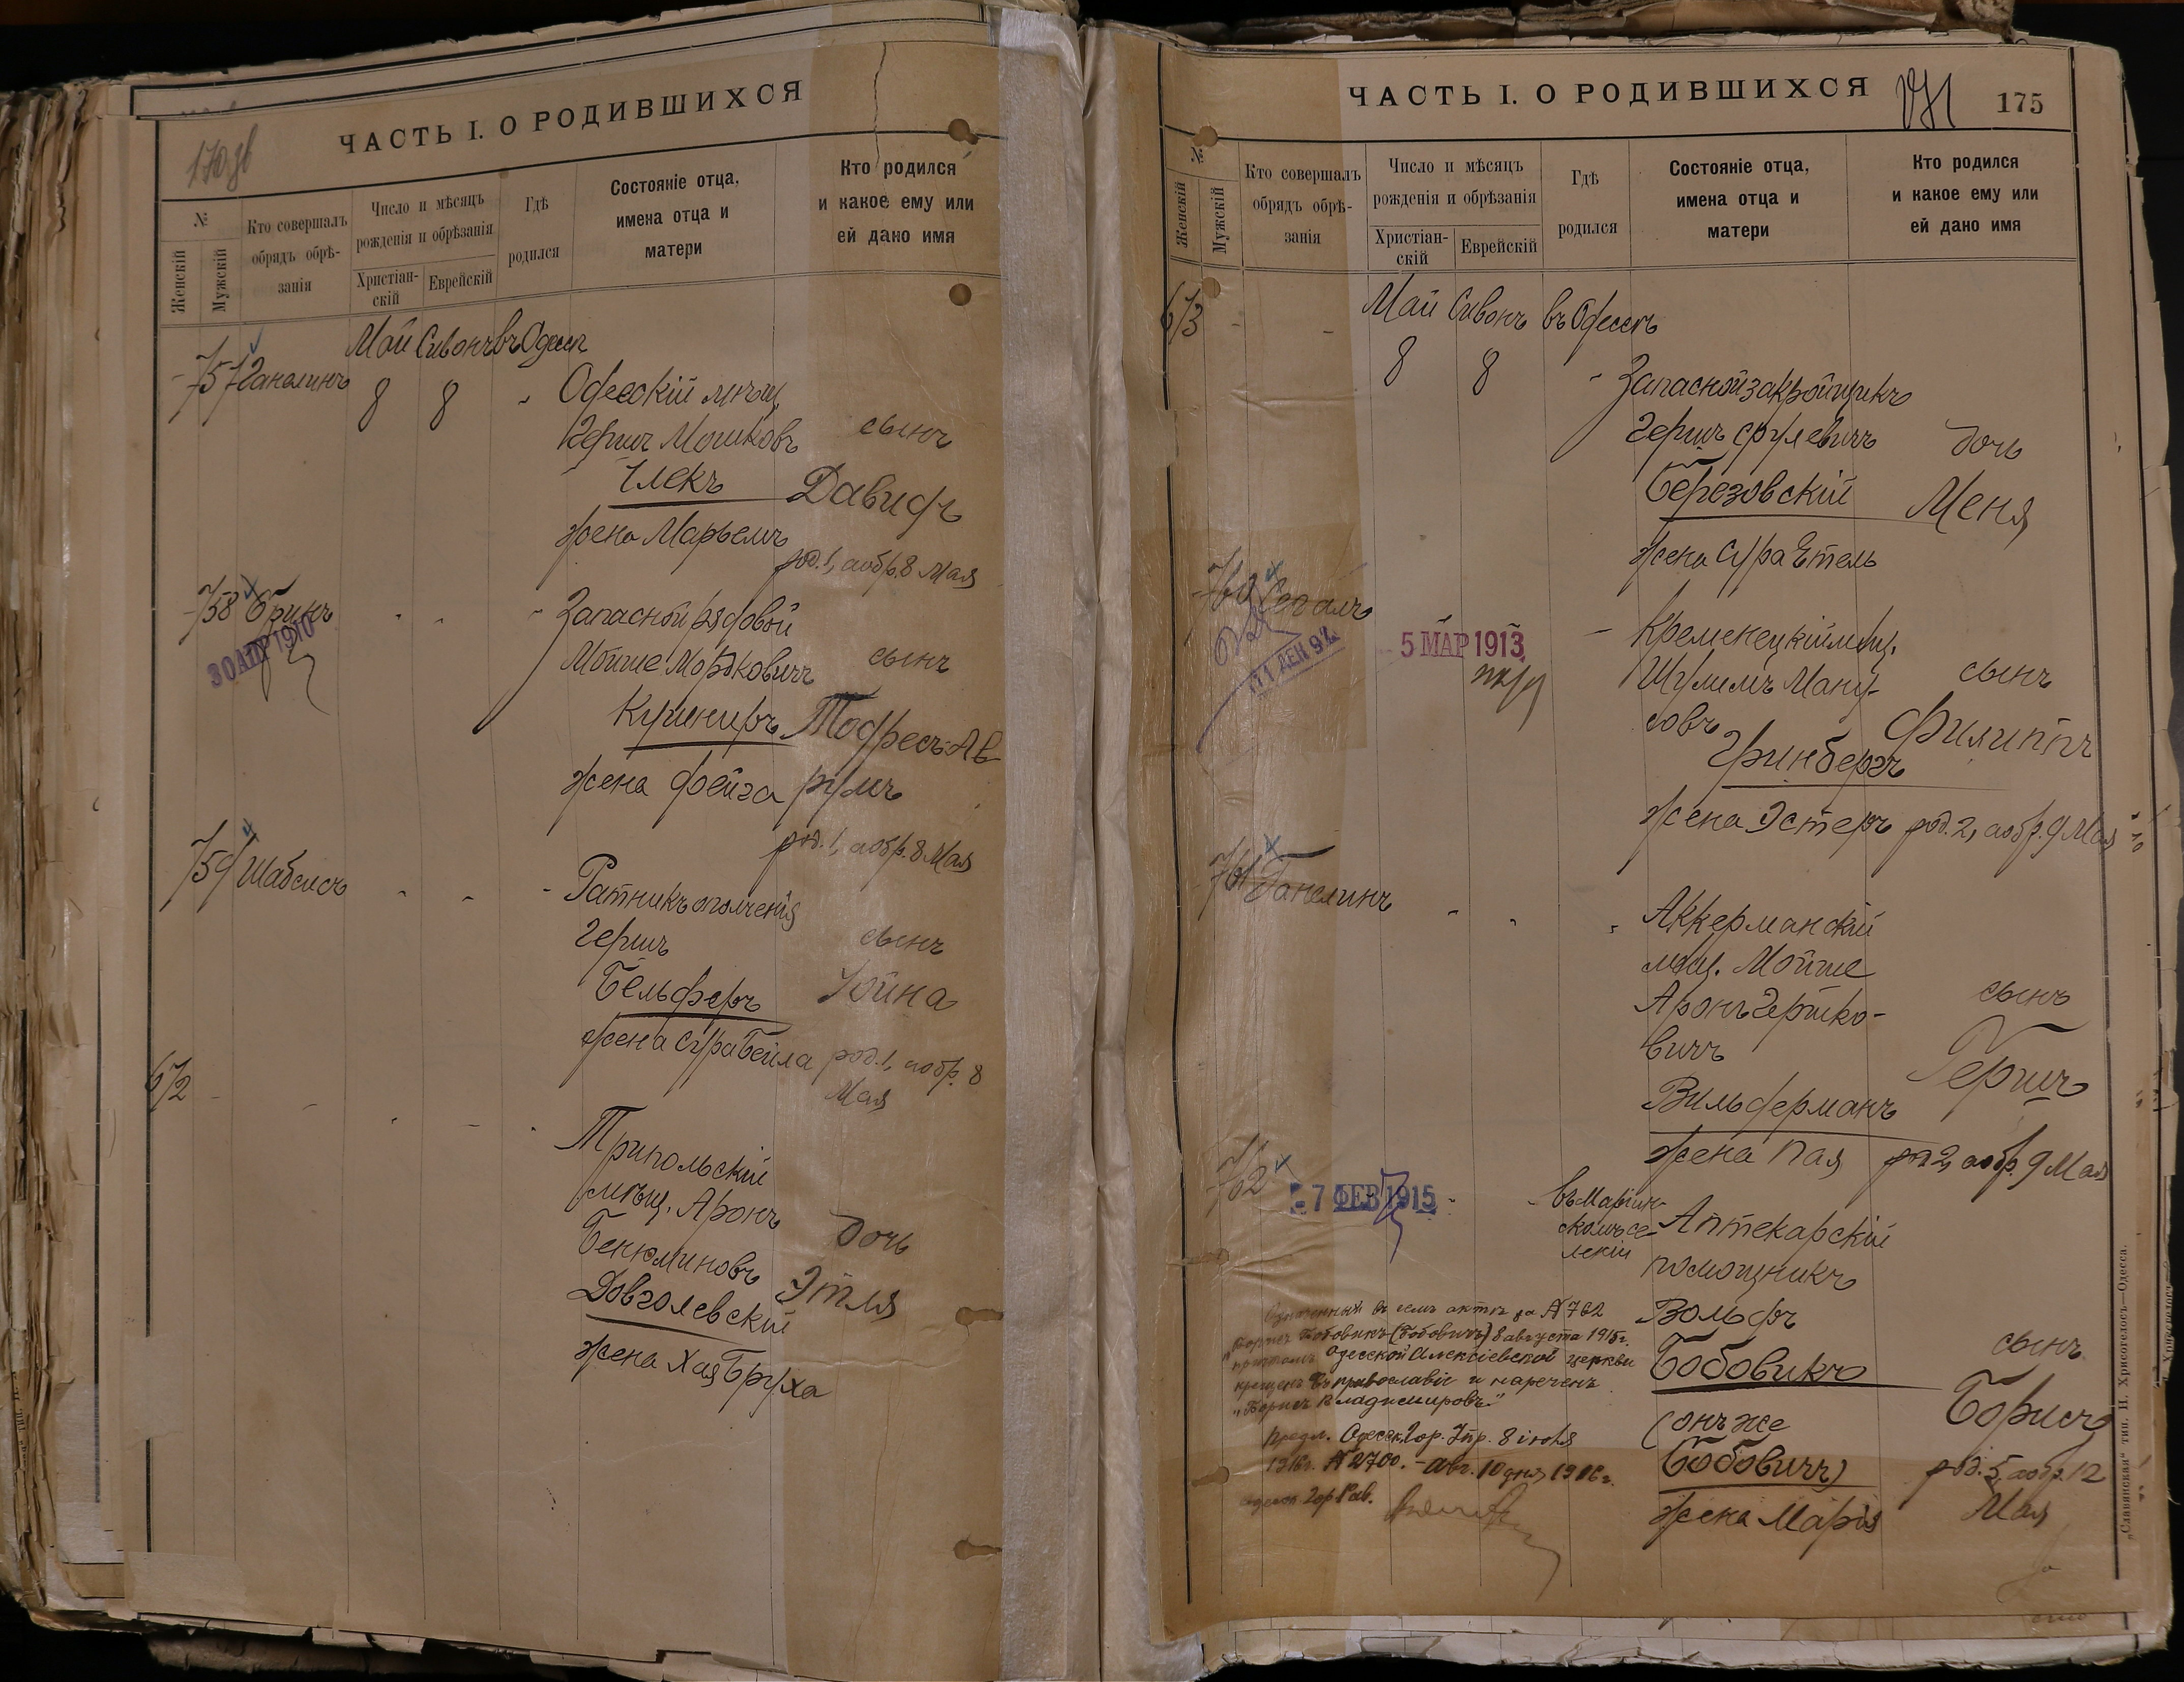 ЧАСТЬ I. О РОДИВШИХСЯ
№
Женскій
Мужскій
Кто совершалъ
обрядъ обрѣ-
занія
Число и мѣсяцъ
рожденія и обрѣзанія
Христіан-
скій
Еврейскій
Гдѣ
родился
Состояніе отца,
имена отца и
матери
Кто родился
и какое ему или
ей дано имя
Май Сивонъ въ Одессѣ
757 Ганелинъ 8 8
Одесскій мѣщ.
Гершъ Мошковъ сынъ
Улекъ Давидъ
жена Марьемъ
род. 1, а обр. 8 Мая
758 Бринъ
30 АПР 1910
Запасной рядовой
Мойше Мордковичъ сынъ
Кушниръ Тодресъ-Ав-
жена Фейга румъ
род. 1, а обр. 8 Мая
759 Шабсисъ
Ратникъ ополченія
Гершъ сынъ
Бельферъ Іойна
жена Сура Бейла род. 1, а обр. 8
Мая
672
Трипольскій
мѣщ. Аронъ
Бенюминовъ дочь
Довголевскій Этля
жена Хая Бруха
ЧАСТЬ I. О РОДИВШИХСЯ
175
№
Женскій
Мужскій
Кто совершалъ
обрядъ обрѣ-
занія
Число и мѣсяцъ
рожденія и обрѣзанія
Христіан-
скій
Еврейскій
Гдѣ
родился
Состояніе отца,
имена отца и
матери
Кто родился
и какое ему или
ей дано имя
673
Май Сивонъ въ Одессѣ
8 8
Запасной закройщикъ
Гершъ Срулевичъ дочь
Березовскій Меня
жена Сура Этель
760 Сегалъ
5 МАР 1913
Кременецкій мѣщ.
Шулимъ Ману- сынъ
ловъ Филиппъ
Гринбергъ
жена Эстеръ род. 2, а обр. 9 Мая
761 Ганелинъ
Аккерманскій
мѣщ. Мойше
Аронъ Гершко- сынъ
вичъ Гершъ
Вильферманъ
жена Пая род. 2, а обр. 9 Мая
762
- 7 ФЕВ 1915
въ Маріин-
скомъ се-
леніи
Аптекарскій
помощникъ
Вольфъ
Бобовикъ сынъ
(онъ же Борисъ
Бобовичъ) род. 5, а обр. 12
жена Марія Мая
Означенный въ семъ актѣ за № 762
"Борисъ Бобовикъ (Бобовичъ)" 8 августа 1915 г.
причтомъ Одесской Алексіевской церкви
крещенъ въ православіе и нареченъ
"Борисъ Владимировъ"
Предл. Одесск. Гор. Упр. 8 іюля
1916 г. № 2700. - авг. 10 дня 1916 г.
Одесск. Гор. Рав.
„Славянская“ тип. Н. Хрисогелосъ—Одесса.